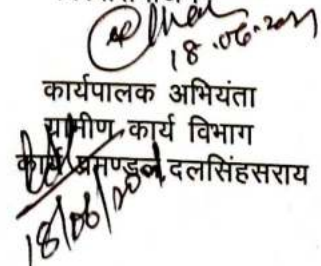 18.06.2021
कार्यपालक अभियंता
ग्रामीण कार्य विभाग
कार्य प्रमण्डल, दलसिंहसराय
18/06/2021